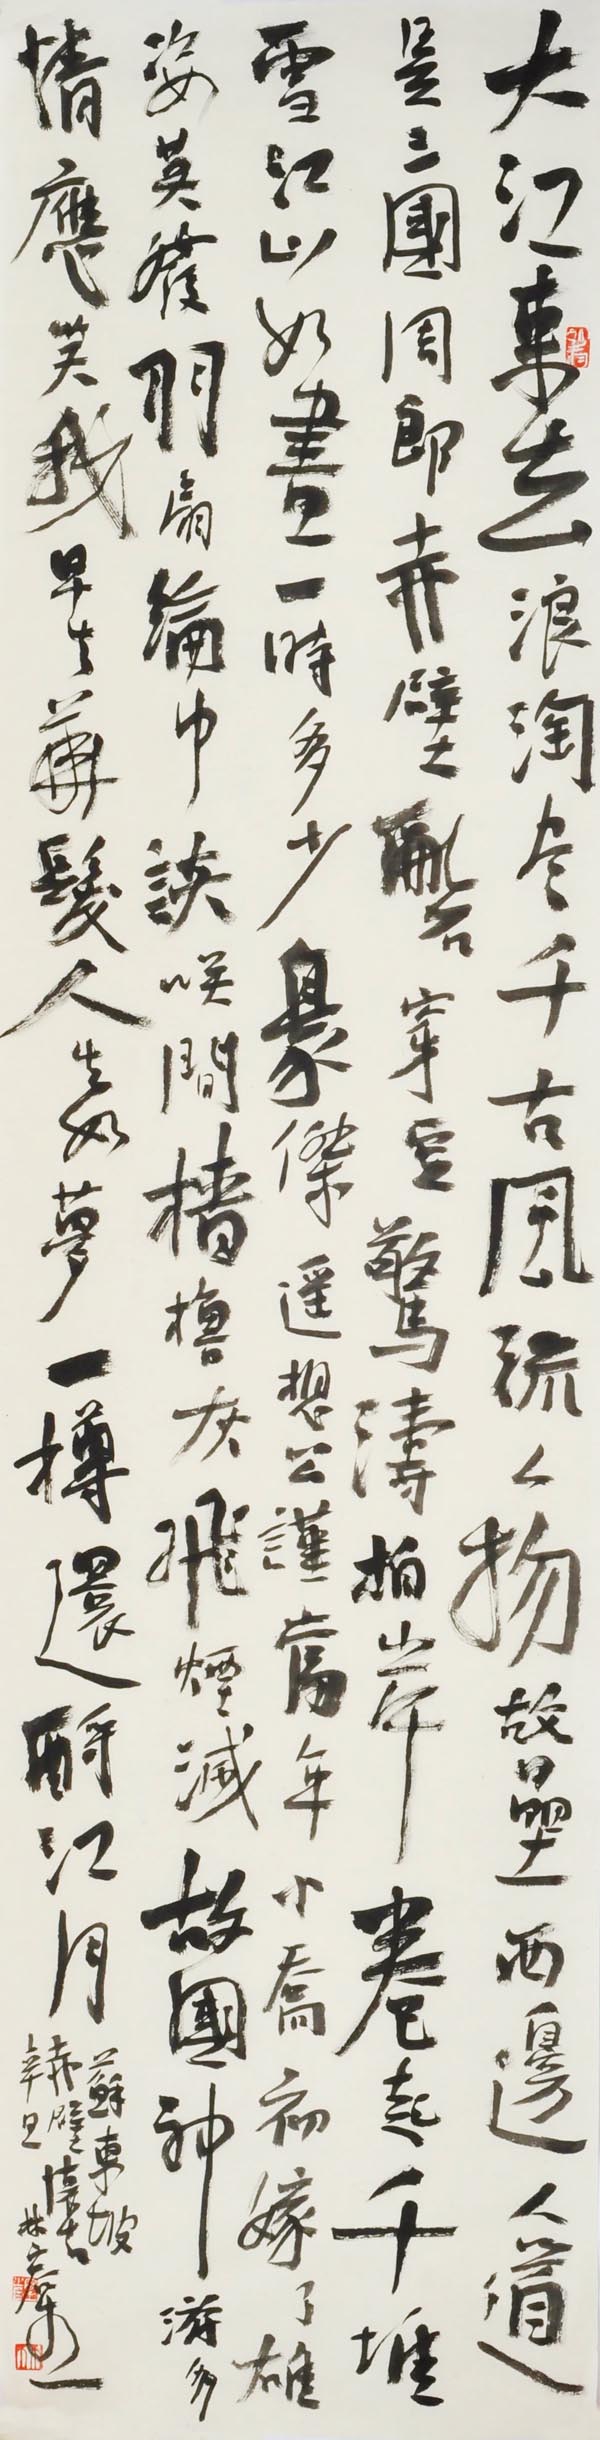 大江東去浪淘尽千古風流人物故壘西邊人道
是三國周郎赤壁亂石穿空驚濤拍岸卷起千堆
雪江山如畫一時多少豪傑遥想公謹當年小喬初嫁了雄
姿英發羽扇綸巾談咲間檣櫓灰飛煙滅故國神游多
情應笑我早生華髮人生如夢一樽還酹江月
蘇東坡
赤壁懷古
辛丑